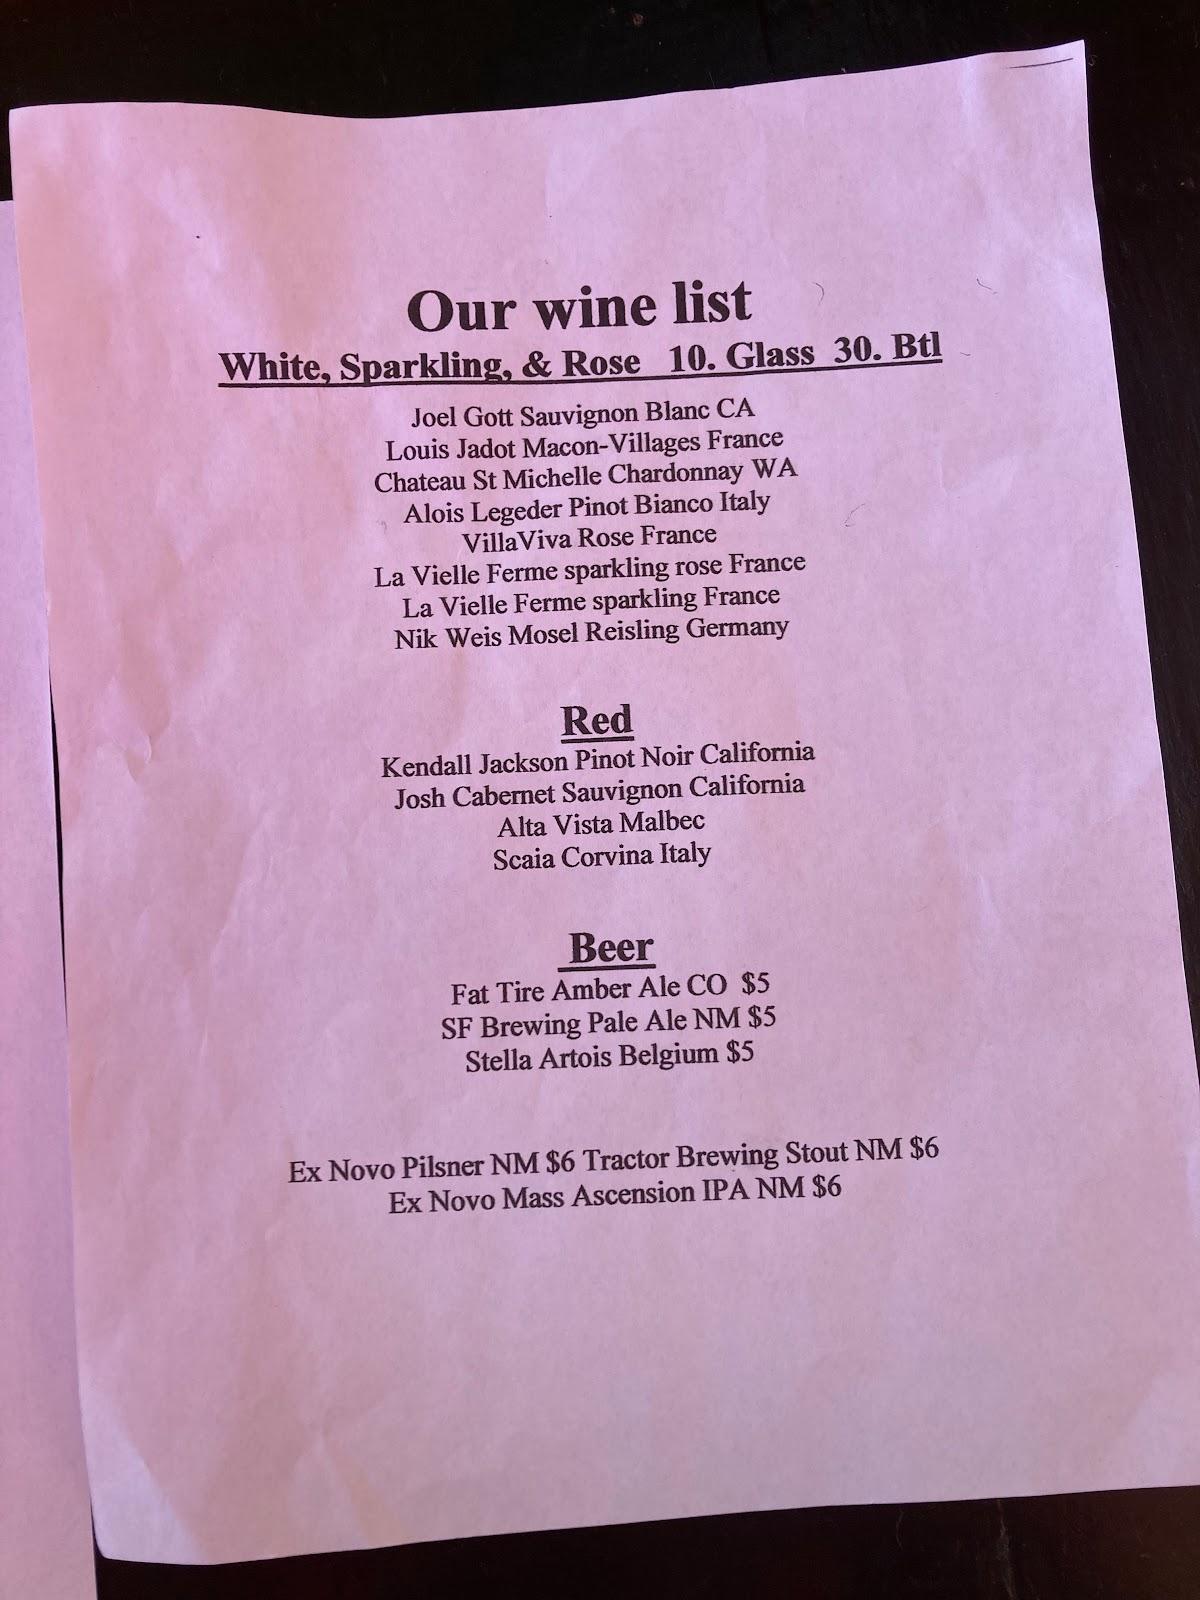 Our wine list
White, Sparkling, & Rose 10. Glass 30. Btl
Joel Gott Sauvignon Blanc CA
Louis Jadot Macon-Villages France
Chateau St Michelle Chardonnay WA
Alois Legeder Pinot Bianco Italy
VillaViva Rose France
La Vielle Ferme sparkling rose France
La Vielle Ferme sparkling France
Nik Weis Mosel Reisling Germany
Red
Kendall Jackson Pinot Noir California
Josh Cabernet Sauvignon California
Alta Vista Malbec
Scaia Corvina Italy
Beer
Fat Tire Amber Ale CO $5
SF Brewing Pale Ale NM $5
Stella Artois Belgium $5
Ex Novo Pilsner NM $6 Tractor Brewing Stout NM $6
Ex Novo Mass Ascension IPA NM $6